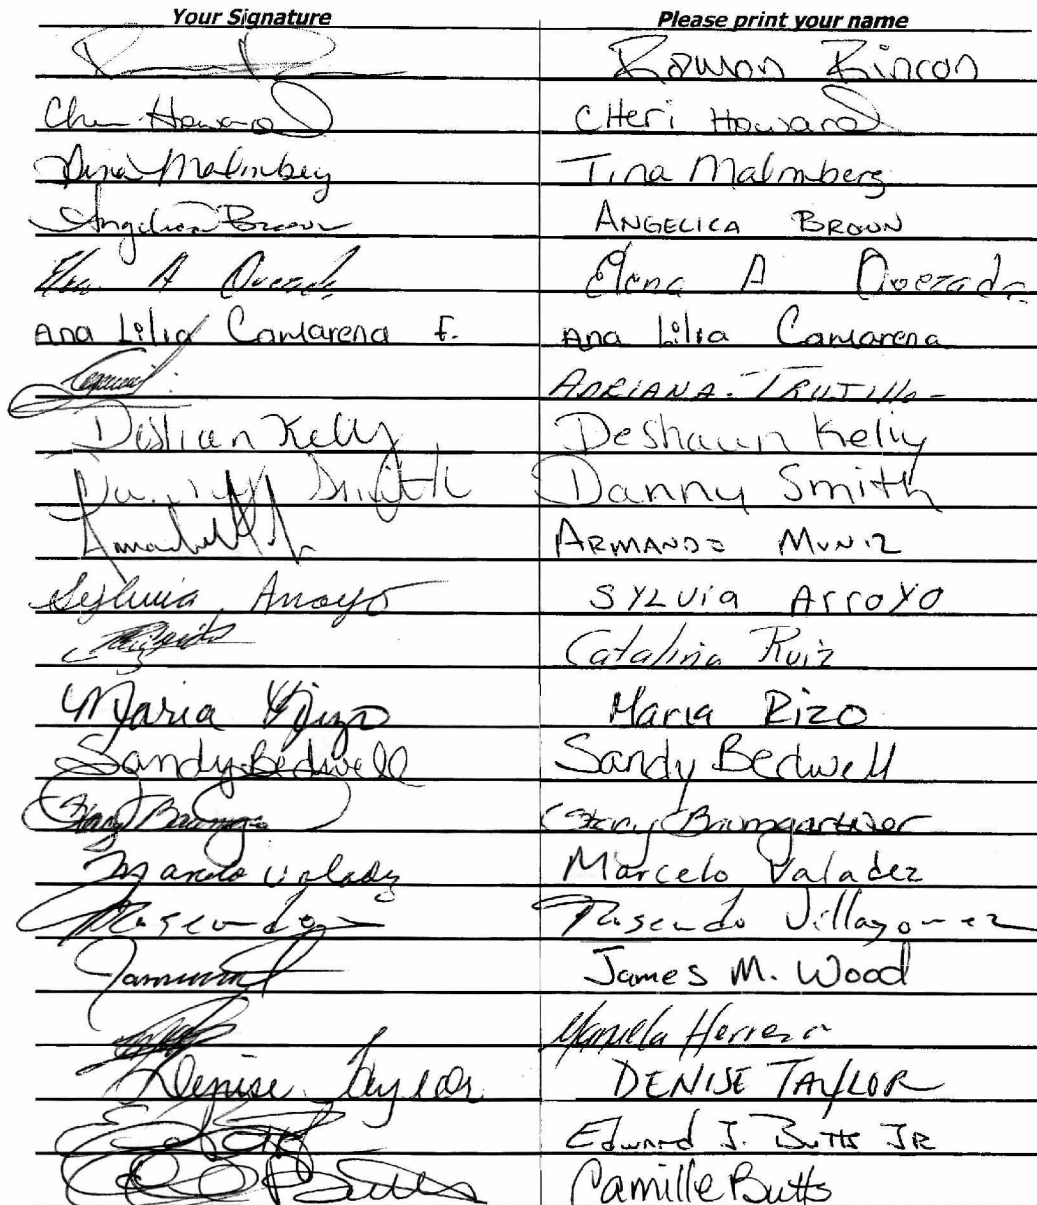 Your Signature Please print your name
Ramon Rincon
Cheri Howard CHeri Howard
Tina Malmberg Tina Malmberg
Angelica Brown ANGELICA BROWN
A Quezada Elena A Quezada
Ana Lilia Camarena F. Ana Lilia Camarena
ADRIANA. TRUJILLO-
Deshaun Kelly Deshaun Kelly
Danny Smith Danny Smith
ARMANDO MUNIZ
Sylvia Arroyo SYLVIA ArroYo
Catalina Ruiz
Maria Rizo Maria Rizo
Sandy Bedwell Sandy Bedwell
Stacy Stacy Baumgartner
Marcelo Valadez Marcelo Valadez
Rosendo Rosendo Villagomez
James M. Wood
Manuela Herrera
Denise Taylor DENISE TAYLOR
Edward J. Butts JR
Butts Camille Butts